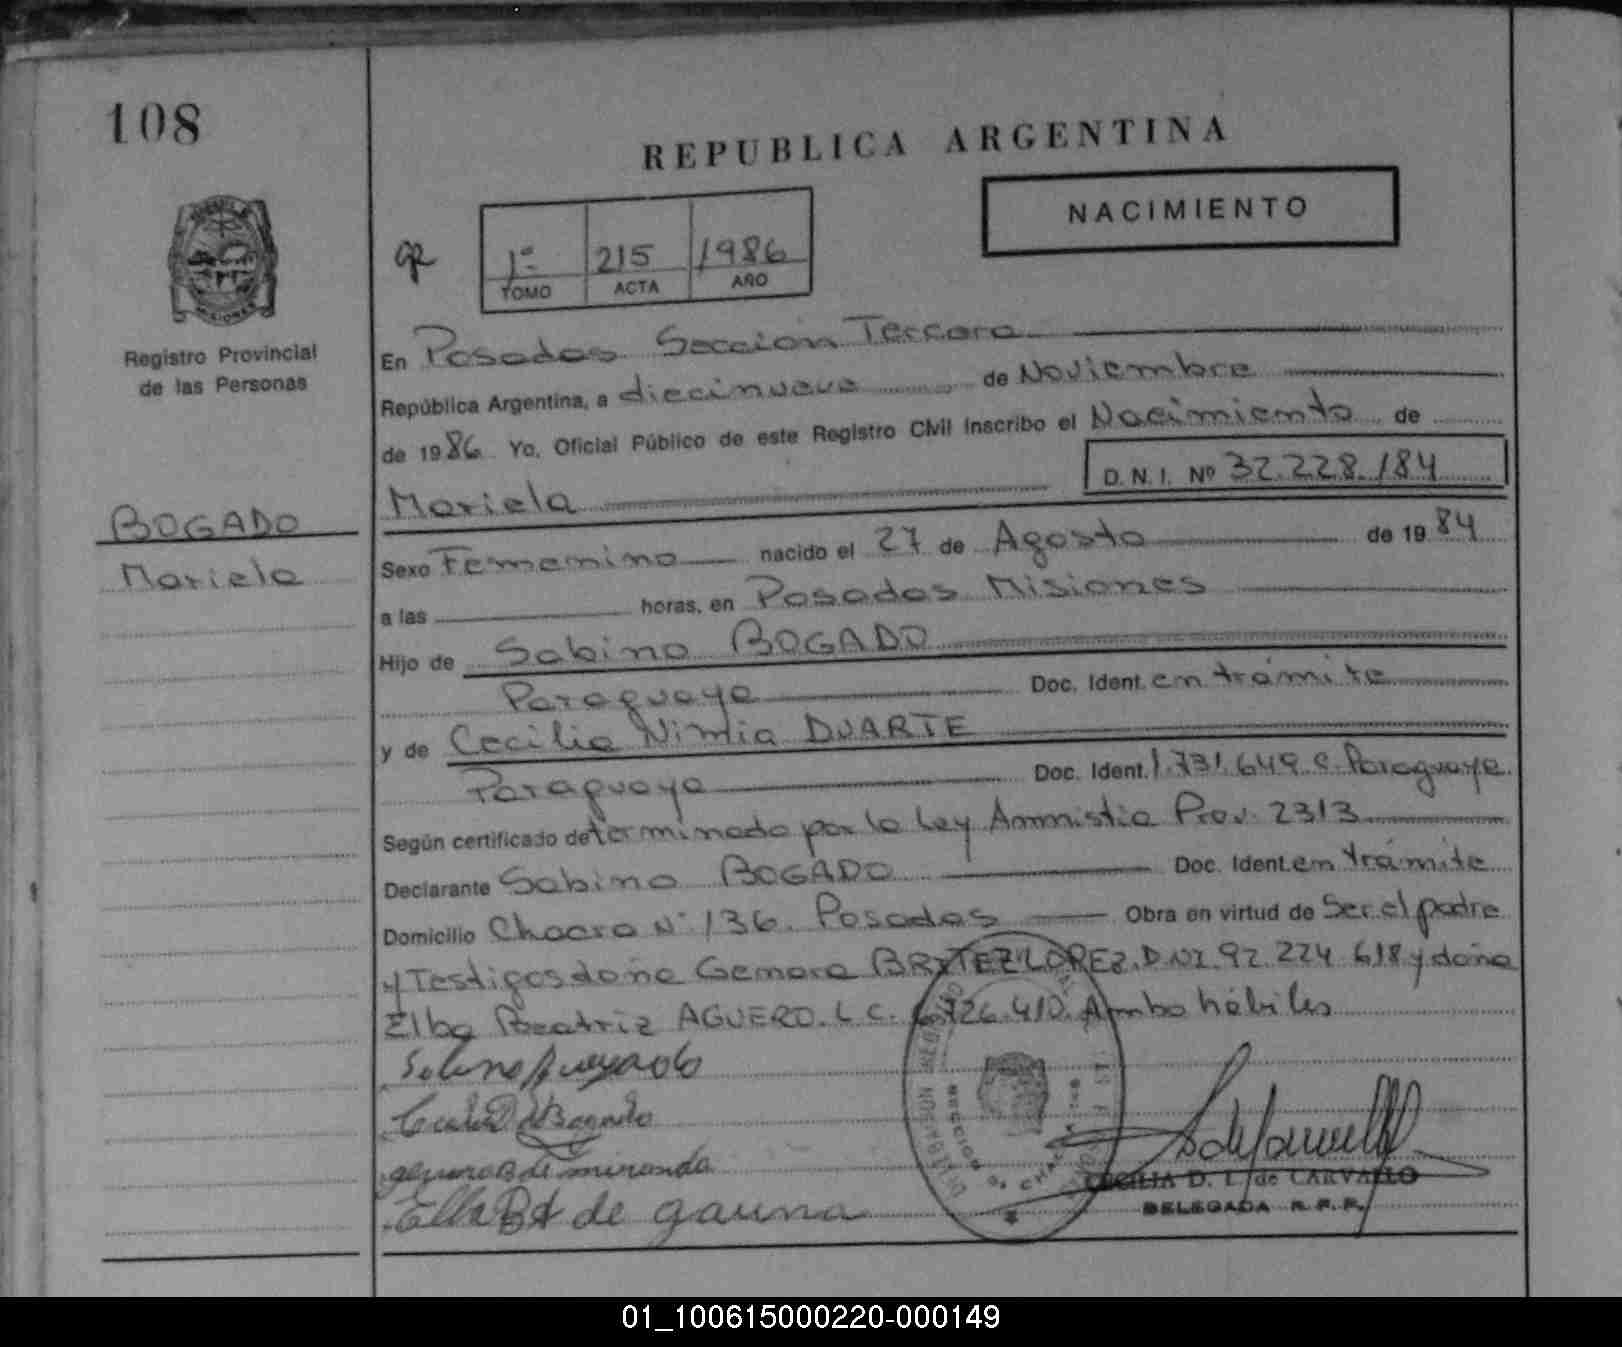 108
REPUBLICA ARGENTINA
NACIMIENTO
1º 215 1986
TOMO ACTA AÑO
MISIONES
Registro Provincial
de las Personas
BOGADO
Mariela
En Posadas Sección Tercera
República Argentina, a diecinueve de Noviembre
de 1986 Yo, Oficial Público de este Registro Civil inscribo el Nacimiento de
Mariela D. N. I. Nº 32.228.184
Sexo Femenino nacido el 27 de Agosto de 1984
a las horas, en Posadas Misiones
Hijo de Sabino BOGADO
Paraguaya Doc. Ident. en trámite
y de Cecilia Nimia DUARTE
Paraguaya Doc. Ident. 1.731.649 c. Paraguaya
Según certificado determinado por la Ley Ammistia Prov. 2313
Declarante Sabino BOGADO Doc. Ident. en trámite
Domicilio Chacra Nº 136. Posadas Obra en virtud de Ser el padre
y Testigos doña Genara BRITEZ LOPEZ. D.N.I. 92.224.618 y doña
Elba Beatriz AGUERO. L.C. 6.726.410. Ambo hábiles
de Bogado
de miranda
de gauna
CECILIA D. L. de CARVALLO
DELEGADA R. P. P.
01_100615000220-000149